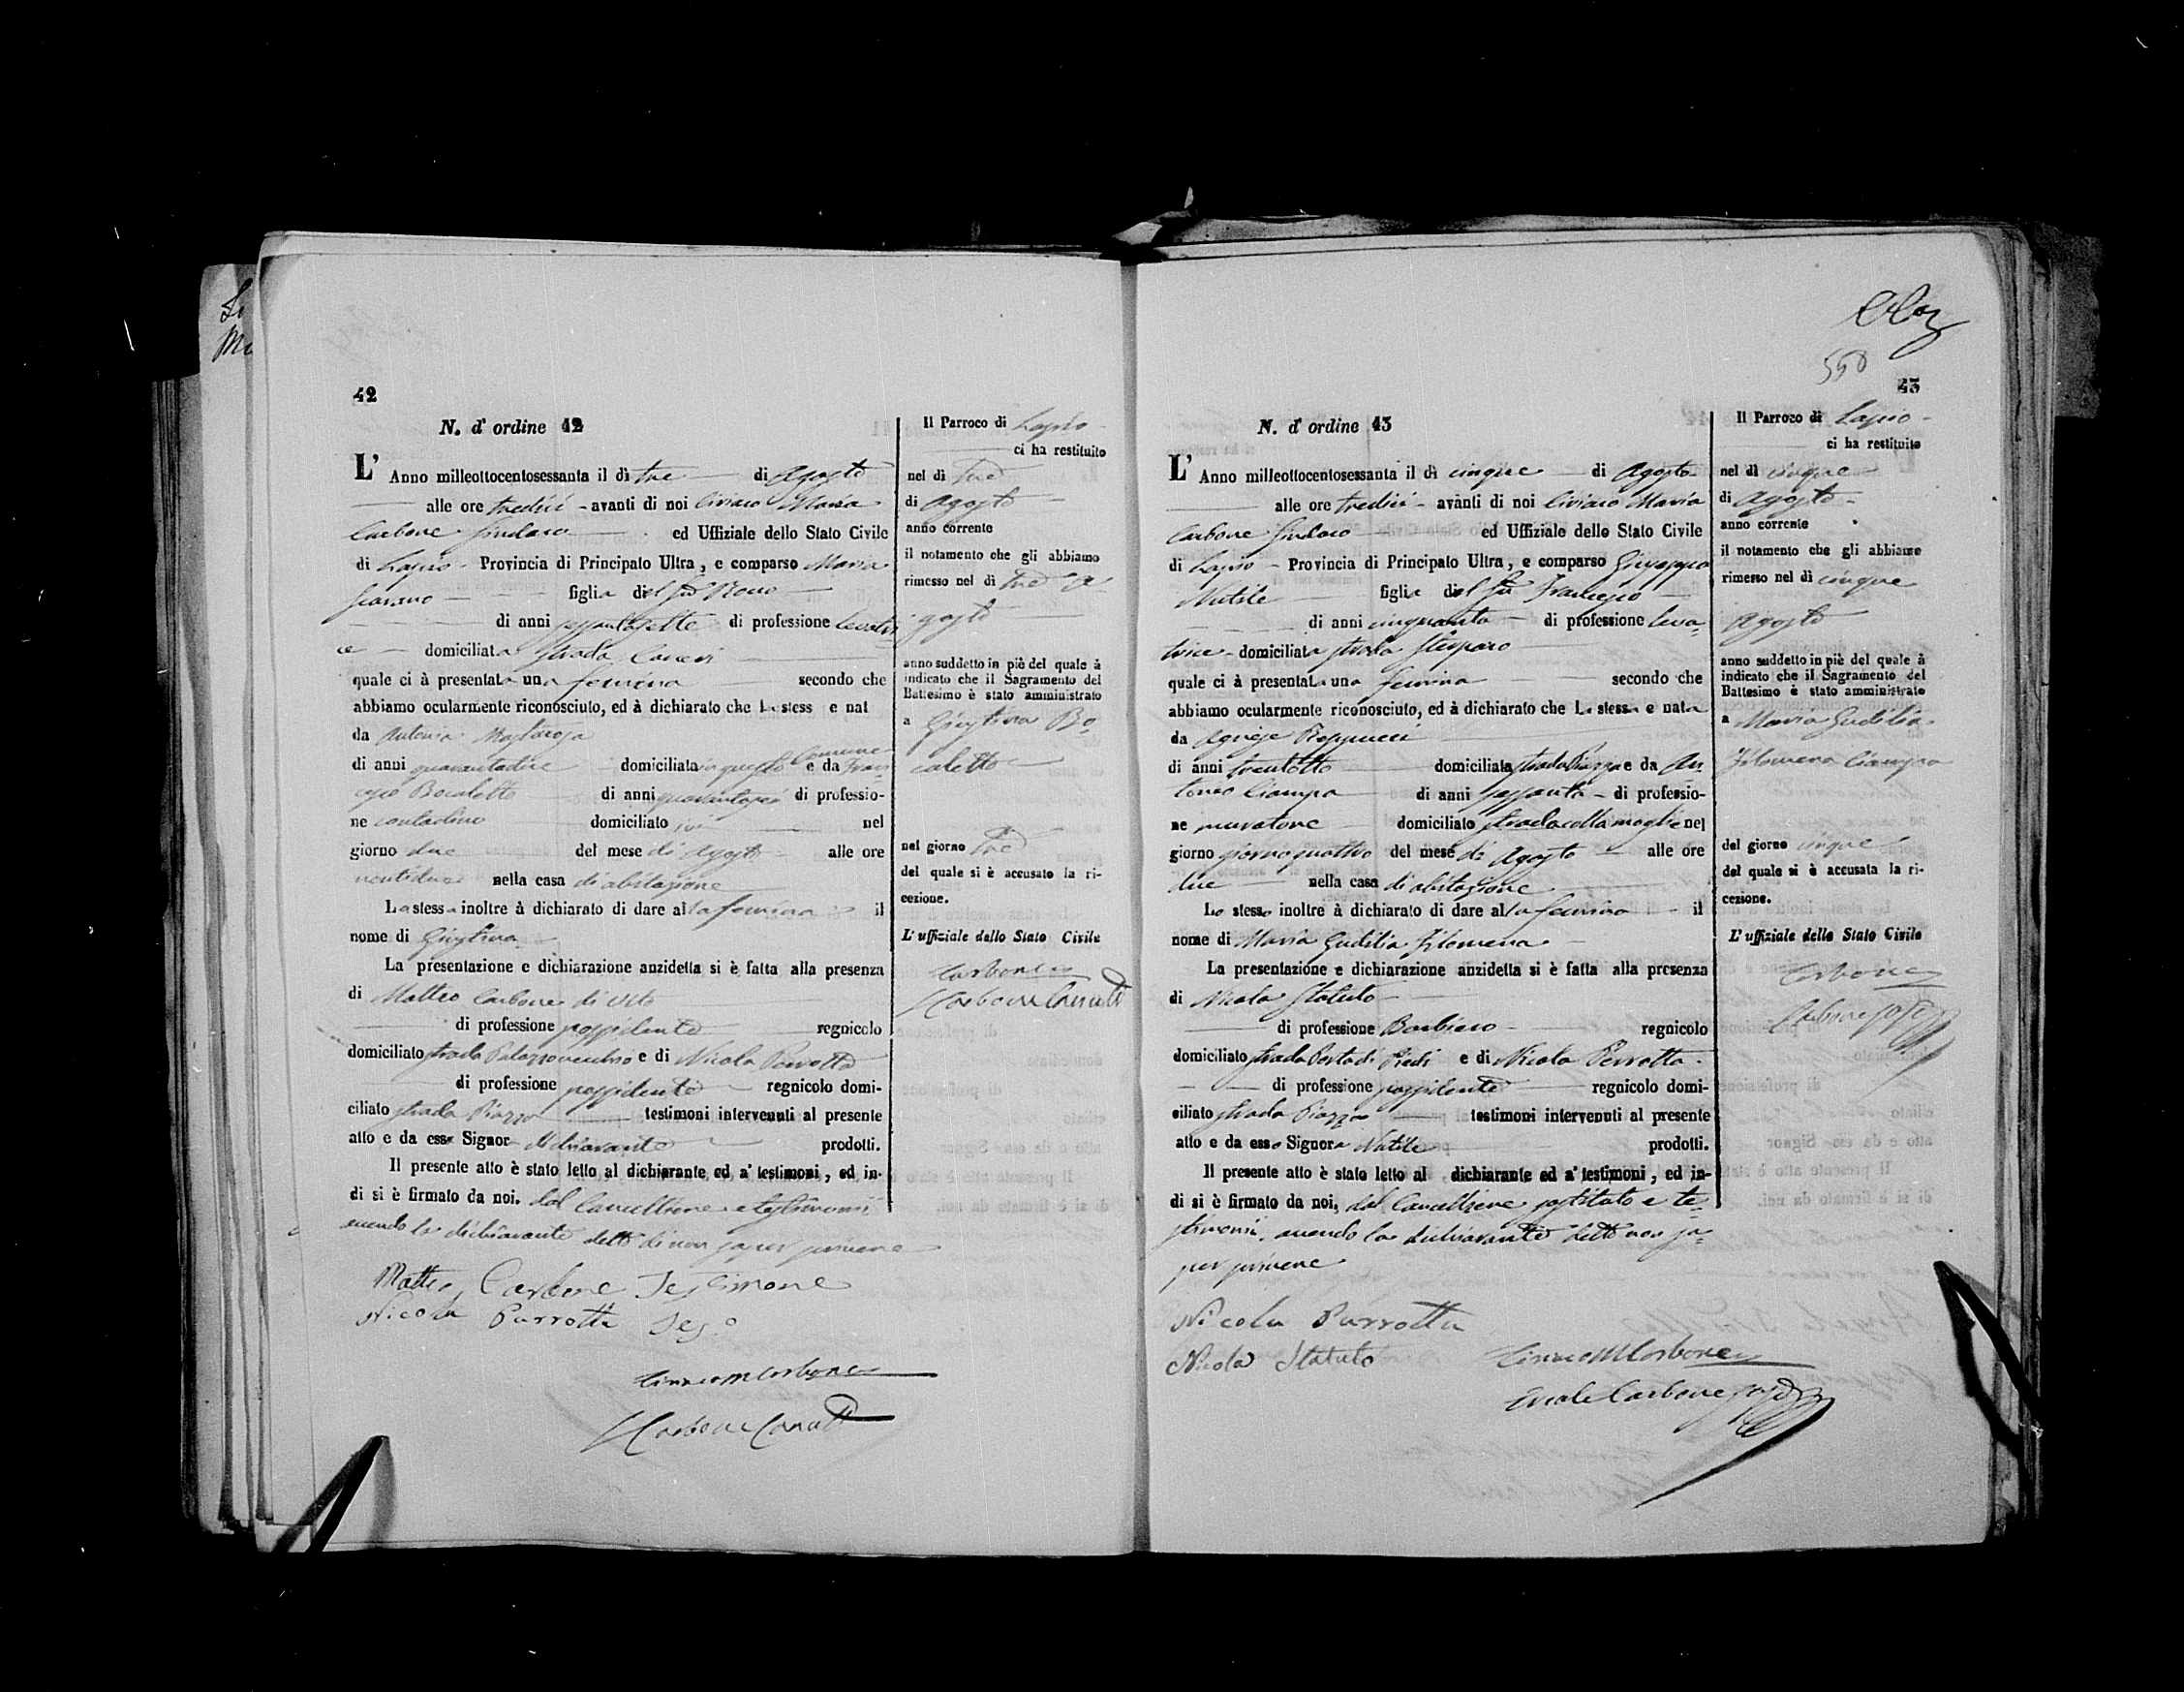 42
N. d' ordine 42
L' Anno milleottocentosessanta il dì tre di Agosto
alle ore tredici - avanti di noi Ciriaco Maria
Carbone Sindaco ed Uffiziale dello Stato Civile
di Lapio - Provincia di Principato Ultra, e comparso Maria
figlia del fu Rocco
di anni sessantasette di professione levatri
ce domiciliata strada Carceri
quale ci à presentata una femina secondo che
abbiamo ocularmente riconosciuto, ed à dichiarato che La stess e nat
da Antonia
di anni domiciliata in questo Comune e da Fran-
cesco Bocaletto di anni di professio-
ne contadino domiciliato ivi nel
giorno due del mese di Agosto alle ore
ventidue nella casa di abitazione
La stessa inoltre à dichiarato di dare alla femina il
nome di Giustina
La presentazione e dichiarazione anzidetta si è fatta alla presenza
di Matteo Carbone di Vito
di professione possidente regnicolo
domiciliato strada Palazzo vecchio e di Nicola Perrotta
di professione possidente regnicolo domi-
ciliato strada Piazza testimoni intervenuti al presente
atto e da essa Signora dichiarante prodotti.
Il presente atto è stato letto al dichiarante ed a' testimoni, ed in-
di si è firmato da noi, dal Cancelliere e testimoni
avendo la dichiarante detto di non saper scrivere
Matteo Carbone Testimone
Nicola Parrotta Tes.°
Ciriaco M Carbone
Carbone Canc
Il Parroco di Lapio -
ci ha restituito
nel dì Tre
di Agosto
anno corrente
il notamento che gli abbiamo
rimesso nel dì tre A-
gosto
anno suddetto in piè del quale à
indicato che il Sagramento del
Battesimo è stato amministrato
a Giustina Bo-
caletto
nel giorno Tre
del quale si è accusato la ri-
cezione.
L' uffiziale dello Stato Civile
Carbone
Carbone
550
43
N. d' ordine 43
L' Anno milleottocentosessanta il dì cinque di Agosto
alle ore tredici - avanti di noi Ciriaco Maria
Carbone Sindaco ed Uffiziale dello Stato Civile
di Lapio - Provincia di Principato Ultra, e comparso Giuseppa
Nutile figlia del fu Francesco
di anni cinquanta di professione leva-
trice - domiciliata strada
quale ci à presentata una femina secondo che
abbiamo ocularmente riconosciuto, ed à dichiarato che La stessa e nata
da Agnese
di anni trentotto domiciliata strada Piazza e da An-
tonio Ciampa di anni sessanta - di professio-
ne muratore domiciliato strada colla moglie nel
giorno giorno quattro del mese di Agosto alle ore
due nella casa di abitazione
La stessa inoltre à dichiarato di dare alla femina il
nome di Maria Gudilia Filomena
La presentazione e dichiarazione anzidetta si è fatta alla presenza
di Nicola Statuto
di professione Barbiero regnicolo
domiciliato strada Porta di Piedi e di Nicola Perrotta
di professione possidente regnicolo domi-
ciliato strada Piazza testimoni intervenuti al presente
atto e da essa Signora Nutile prodotti.
Il presente atto è stato letto al dichiarante ed a' testimoni, ed in-
di si è firmato da noi, dal Cancelliere sostituto e te-
stimoni, avendo la dichiarante detto non sa-
per scrivere
Nicola Parrotta
Nicola Statuto
Ciriaco M Carbone
Carbone
Il Parroco di Lapio -
ci ha restituito
nel dì cinque
di Agosto -
anno corrente
il notamento che gli abbiamo
rimesso nel dì cinque
Agosto
anno suddetto in piè del quale à
indicato che il Sagramento del
Battesimo è stato amministrato
a Maria Gudilia
Filomena Ciampa
del giorno cinque
del quale si è accusata la ri-
cezione.
L' uffiziale dello Stato Civile
Carbone
Carbone